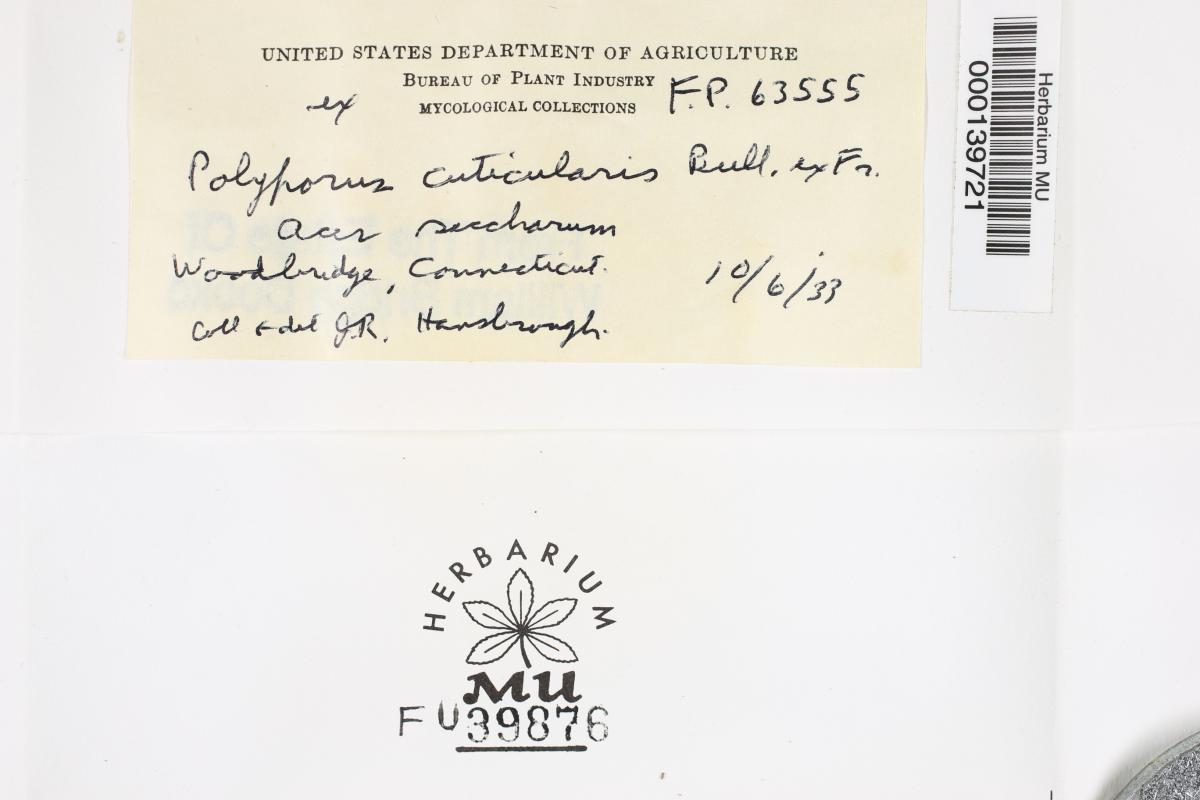 UNITED STATES DEPARTMENT OF AGRICULTURE
BUREAU OF PLANT INDUSTRY
ex MYCOLOGICAL COLLECTIONS F.P. 63555
Polyporus cuticularis Bull. ex Fr.
Acer saccharum
Woodbridge, Connecticut. 10/6/33
Coll & det J.R. Hansbrough.
Herbarium MU
000139721
HERBARIUM
MU
FU39876